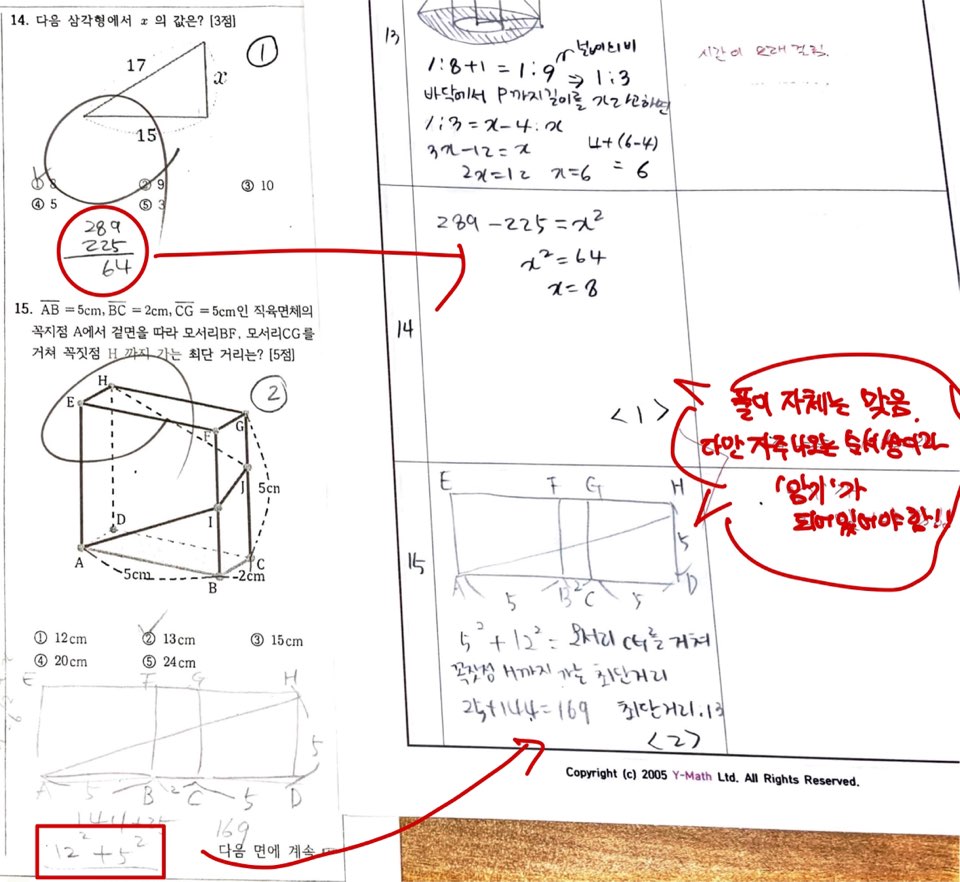 14. 다음 삼각형에서 x 의 값은? [3점]
①
17
x
15
① 8 ② 9 ③ 10
④ 5 ⑤ 3
289
225
64
15. AB = 5cm, BC = 2cm, CG = 5cm인 직육면체의
꼭지점 A에서 겉면을 따라 모서리BF, 모서리CG를
거쳐 꼭짓점 H 까지 가는 최단 거리는? [5점]
②
H
E
F
G
J
5cm
I
D
A
C
5cm
B
2cm
① 12cm ② 13cm ③ 15cm
④ 20cm ⑤ 24cm
E F G H
5
A 5 B 2 C 5 D
144+25
169
12² + 5²
다음 면에 계속
13
넓이의 비
1:8+1 = 1:9 ⇒ 1:3
바닥에서 P까지 길이를 x라고하면
1:3 = x-4 : x
3x-12 = x
4+(6-4)
= 6
2x=12 x=6
시간이 오래 걸림.
14
289 - 225 = x²
x² = 64
x = 8
<1>
풀이 자체는 맞음.
다만 자주나오는
'암기'가
되어있어야 함!!
15
E F G H
5
A 5 B 2 C 5 D
5² + 12² = 모서리 CG를 거쳐
꼭짓점 H까지 가는 최단거리
25+144=169 최단거리.13
<2>
Copyright (c) 2005 Y-Math Ltd. All Rights Reserved.